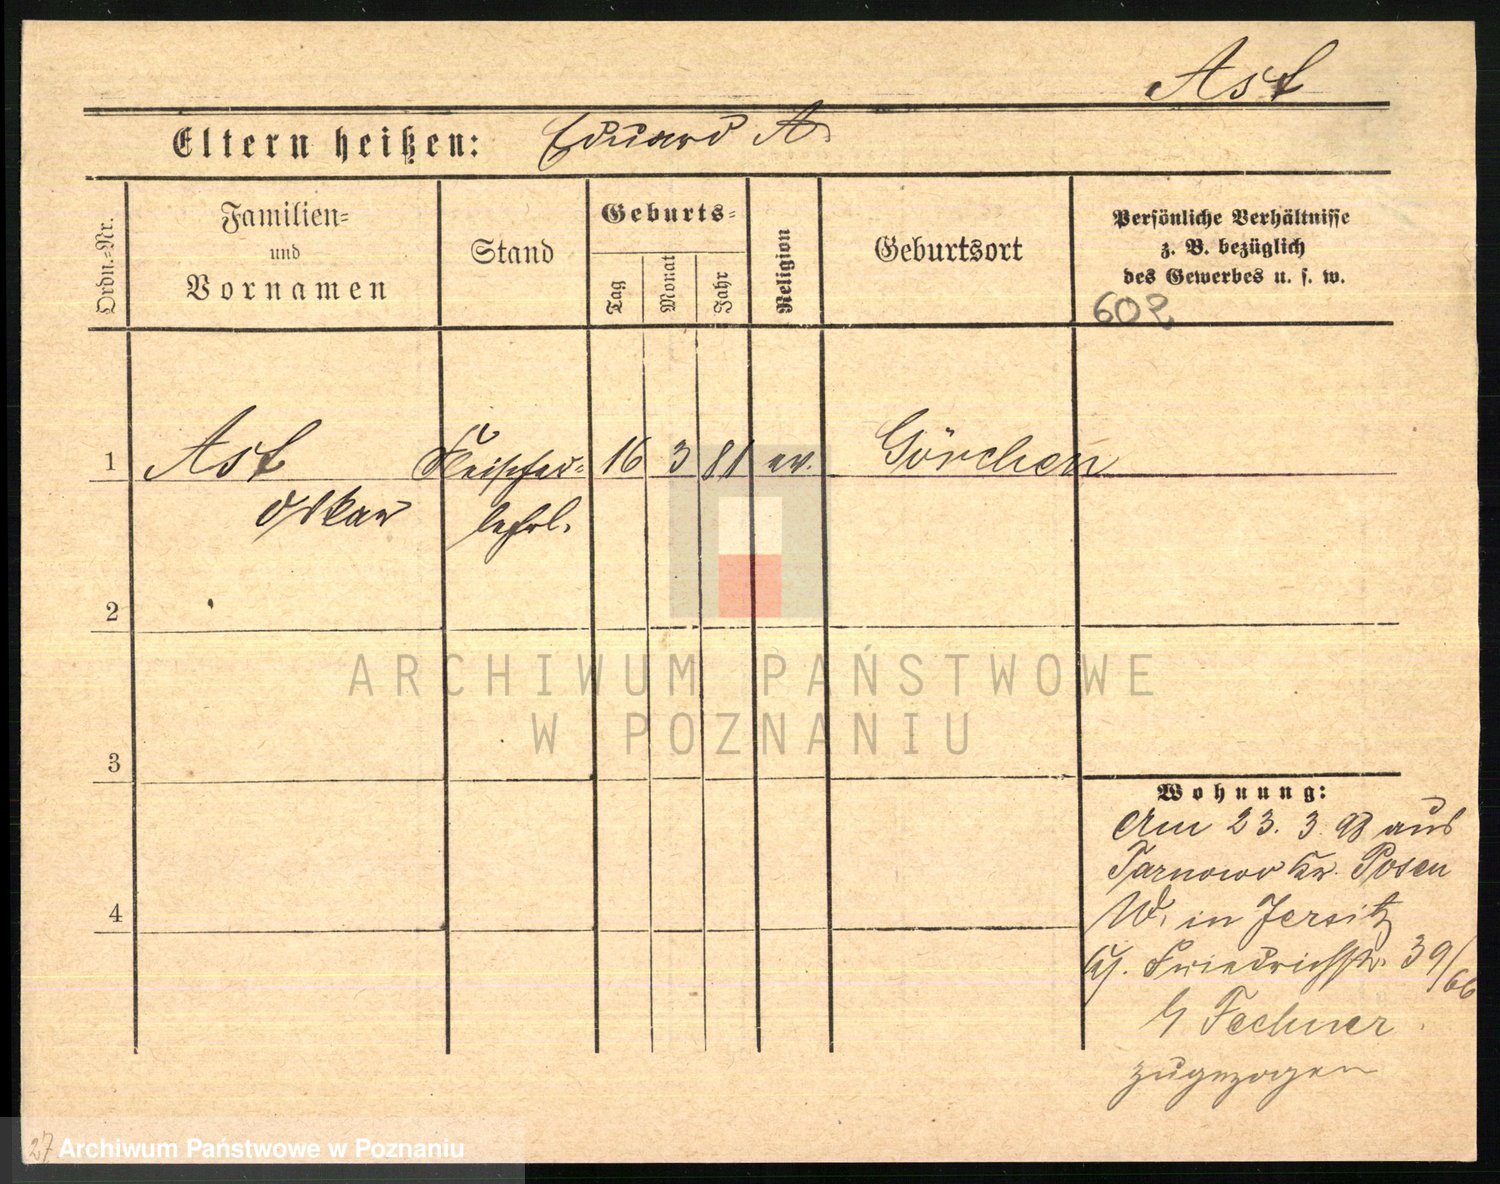 Ast
Eltern heißen: Eduard A.
Ordn.-Nr.
Familien-
und
Vornamen
Stand
Geburts-
Tag
Monat
Jahr
Religion
Geburtsort
Persönliche Verhältnisse
z. B. bezüglich
des Gewerbes u. s. w.
602
1 Ast Fleischer- 16 3 81 ev. Görchen
Oskar lehrl.
2
3
4
Wohnung:
Am 23. 3. 98 aus
Tarnowo Kr. Posen
W. in Jersitz
Friedrichstr. 39/66
b/ Fechner
zugezogen
ARCHIWUM PAŃSTWOWE
W POZNANIU
27
Archiwum Państwowe w Poznaniu